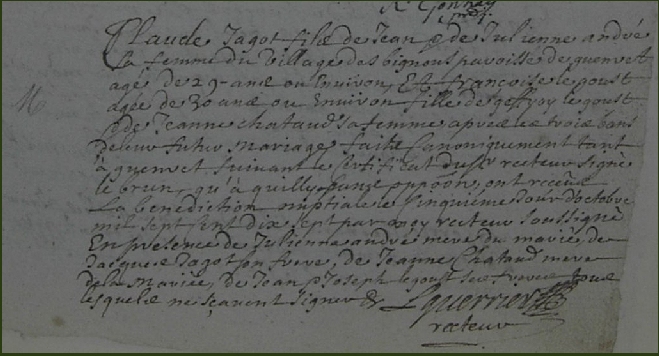 Claude Jagot fils de Jean & de Julienne andré
sa femme du village des bignons paroisse de guenvet
agé de 29 ans ou Environ, Et francoise le goust
agée de 30 ans ou Environ fille de geffroy le goust
& de Jeanne chataud sa femme apres les trois bans
de leur futur Mariage faits Canoniquement tant
à guenvet suivant le Certificat du Sr recteur signé
le brun, qu'à quilly sans oppôon, ont receue
La benediction nuptiale le cinquieme Jour d'octobre
mil sept sent dix sept par moy recteur soussigné
En presence de Julienne andré mere du mariés, de
Jacques Jagot son frere, de Jeanne Chataud mere
de la Mariée, de Jean & Joseph le goust ses freres tous
lesquels ne sçavent signer &
recteur